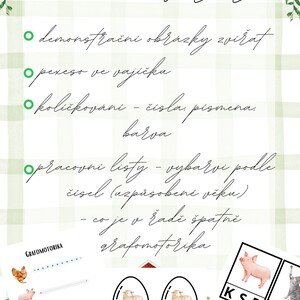 demonstrační obrázky zvířat
pexeso ve vajíčku
kolíčkování - čísla, písmena,
barva
pracovní listy - vybarvi podle
čísel (uzpůsobení věku)
- co je v řadě špatně
grafomotorika
GRAFOMOTORIKA
K S